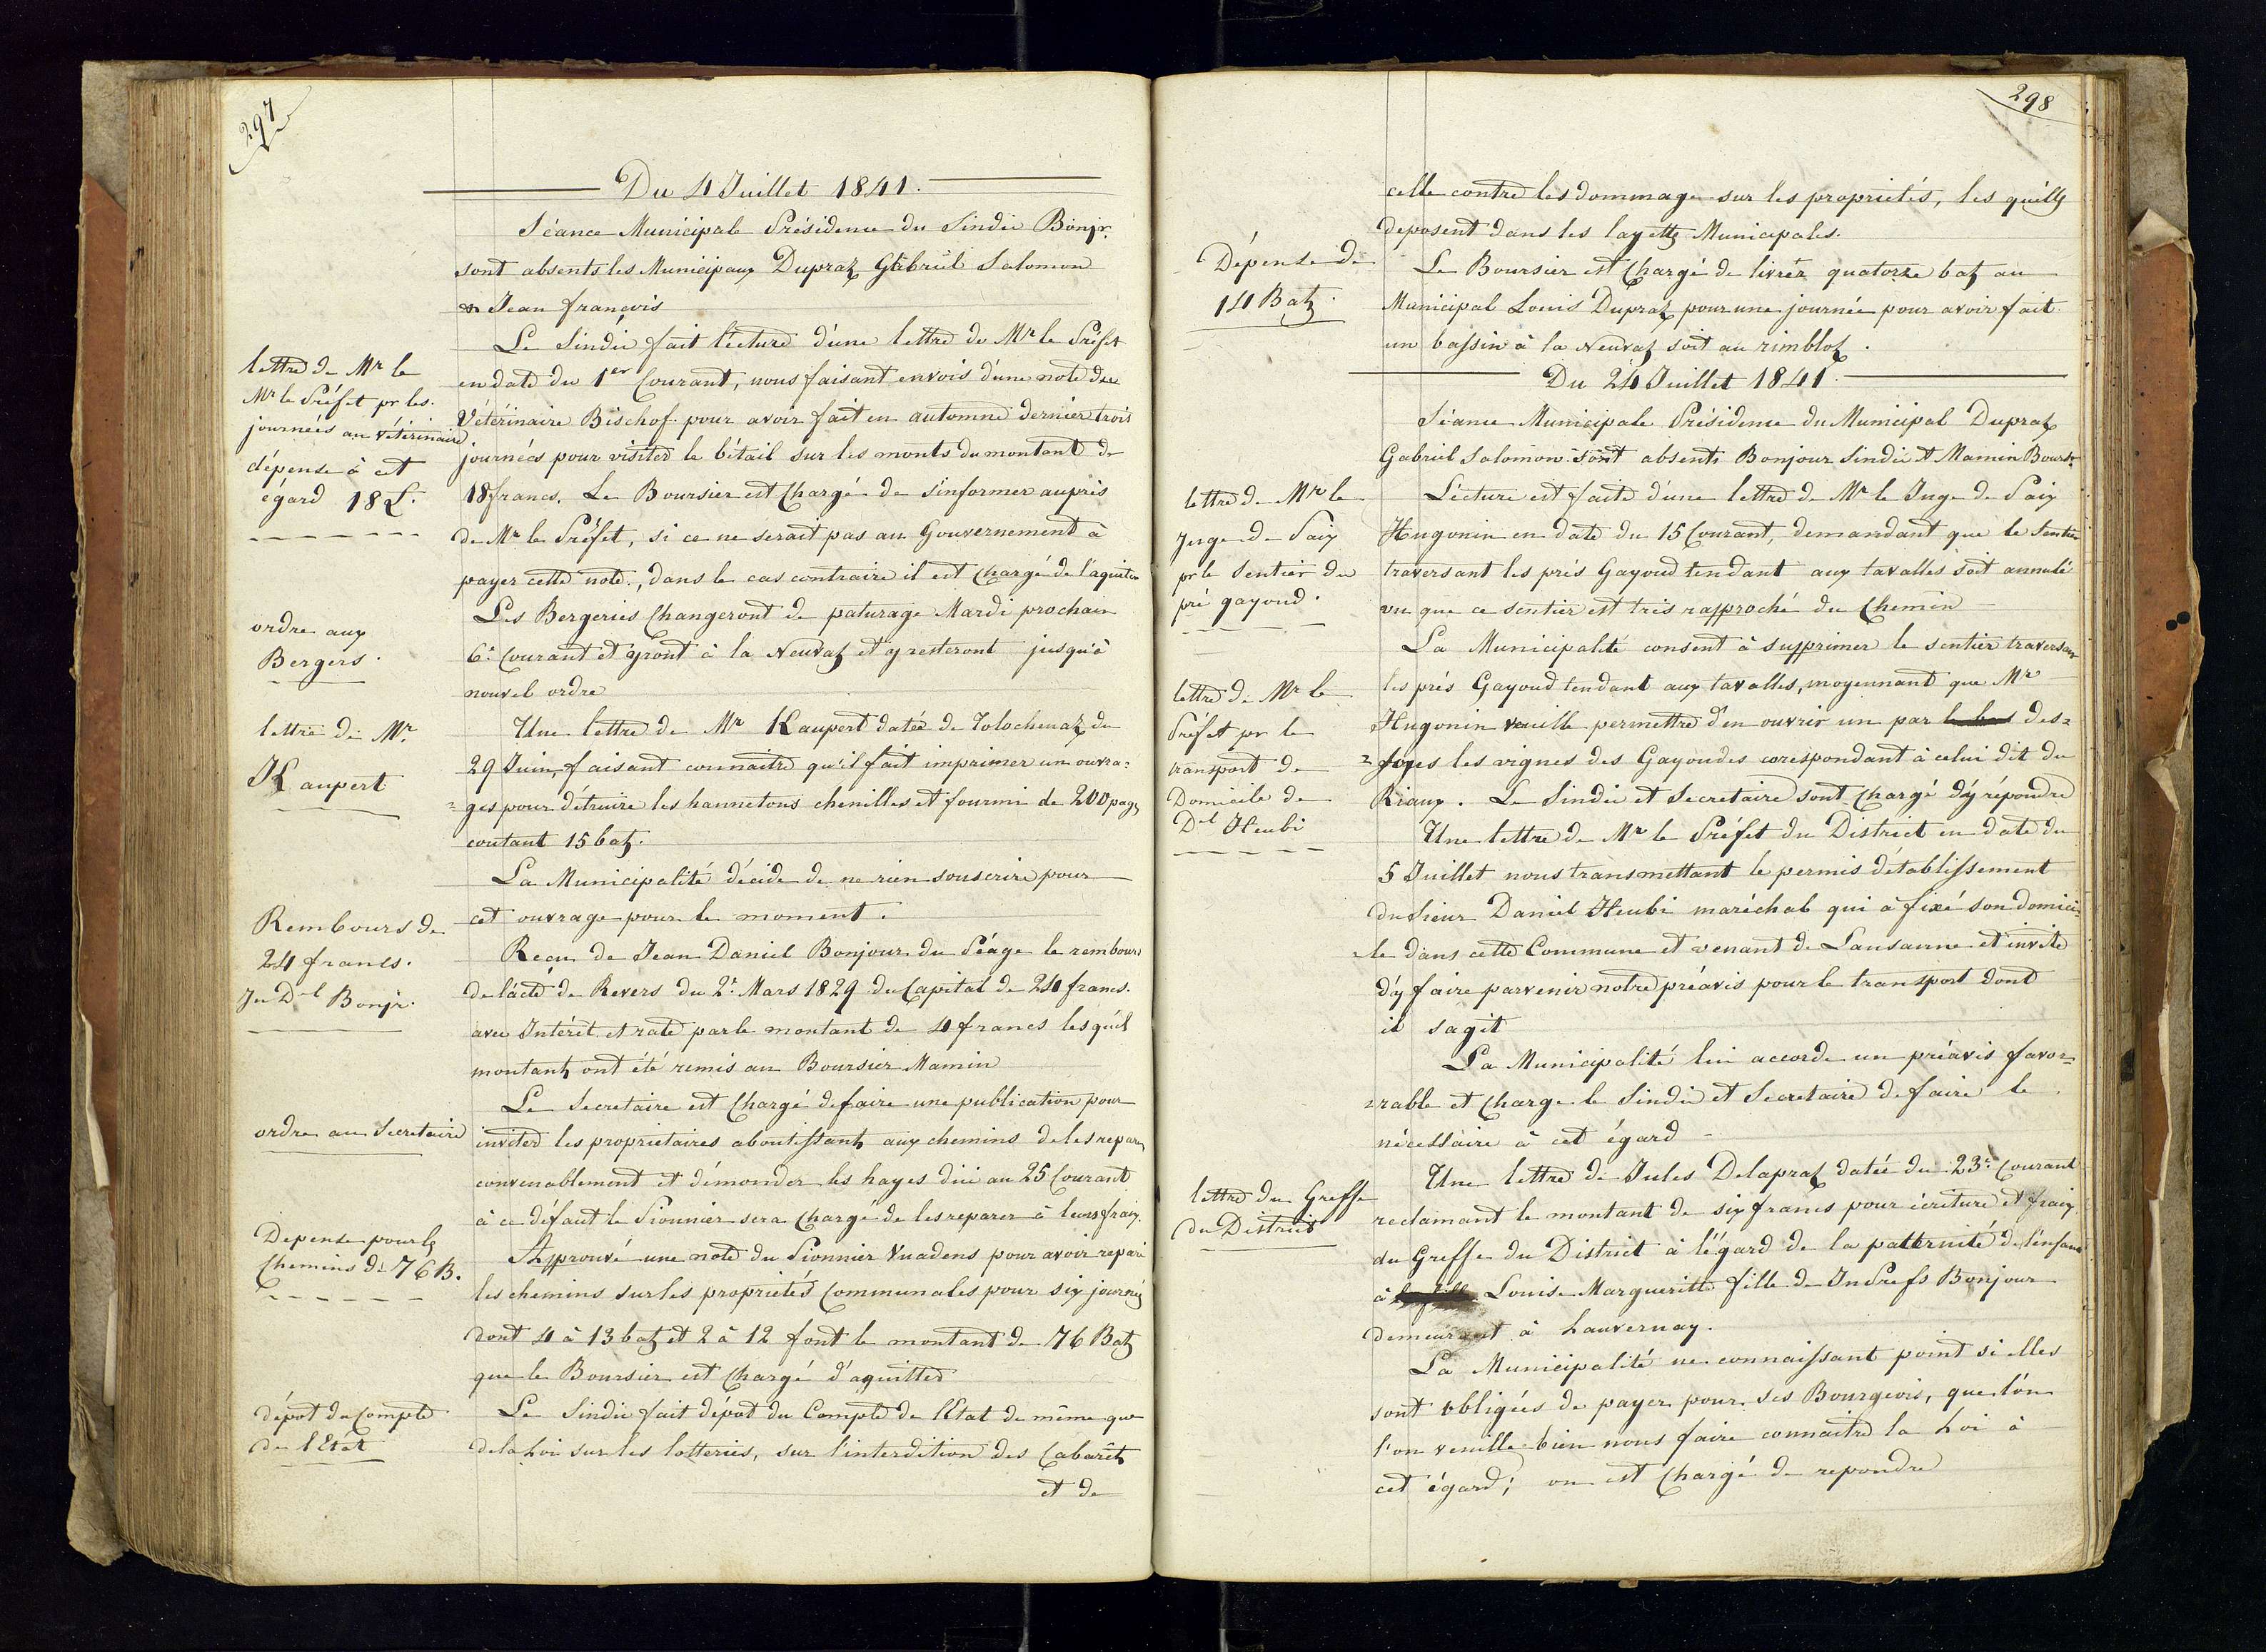 297
Du 4 Juillet 1841.
Séance Municipale Présidence du Sindic Bonjr.
sont absents les Municipaux Dupraz Gabriel Salomon
& Jean françois
lettre de Mr le
Mr le Préfet pr les
journées au vétérinaire
dépense à cet
égard 18 L.
Le Sindic fait lécture d'une lettre de Mr le Préfet
en date du 1er Courant, nous faisant envois d'une note du
Vétérinaire Bischof pour avoir fait en automne dernier trois
journées pour visiter le bétail sur les monts du montant de
18 francs. Le Boursier est Chargé de s'informer auprès
de Mr le Préfet, si ce ne serait pas au Gouvernement à
payer cette note, dans le cas contraire il est Chargé de l'aquiter
ordre aux
Bergers.
Les Bergeries Changeront de paturage Mardi prochain
6e Courant et yront à la Neuvaz et y resteront jusqu'à
nouvel ordre
lettre de Mr.
Kaupert
Une lettre de Mr Kaupert datée de Tolochenaz du
29 Juin, faisant connaitre qu'il fait imprimer un ouvra=
=ges pour détruire les hannetons chenilles et fourmi de 200 pages
coutant 15 batz.
La Municipalité décide de ne rien souscrire pour
cet ouvrage pour le moment.
Rembours de
24 francs.
Jn Dl Bonjr.
Recu de Jean Daniel Bonjour du Péage le rembours
de l'acte de Revers du 2e Mars 1829 du Capital de 24 francs.
avec Intérêt et rate par le montant de 4 francs lesquél
montant ont été remis au Boursier Mamin
ordre au Secretaire
Le Secretaire est Chargé de faire une publication pour
inviter les propriétaires aboutissants aux chemins de les reparer
convenablement et d'émonder les hayes dici au 25 Courant
à ce défaut le Pionnier sera Chargé de les reparer à leurs fraix.
Depense pour les
Chemins de 76 B.
Approuvé une note du Pionnier Vuadens pour avoir reparé
les chemins sur les propriétés Communales pour six journés
dont 4 à 13 batz et 2 à 12 font le montant de 76 Batz
que le Boursier est Chargé d'aquitter
dépot du Compte
de l'Etat
Le Sindic fait dépot du Compte de l'Etat de même que
de la Loi sur les lotteries, sur l'interdition des Cabarêts
et de
298
celle contre les dommage sur les propriétés, les quélls
deposent dans les layetts Municipales.
Dépense de
14 Batz.
Le Boursier est Chargé de livrer quatorze batz au
Municipal Louis Dupraz pour une journée pour avoir fait
un bassin à la Neuvaz soit au rimbloz.
Du 24 Juillet 1841.
Séance Municipale Présidence du Municipal Dupraz
Gabriel Salomon sont absents Bonjour Sindic et Mamin Boursr
lettre de Mr le
Juge de Paix
pr le Sentier du
pré gayoud.
Lécture est faite d'une lettre de Mr le Juge de Paix
Hugonin en date du 15 Courant, demandant que le Sentier
traversant les prés Gayoud tendant aux tavalles soit annulé
vu que ce sentier est très rapproché du Chemin
La Municipalité consent à supprimer le sentier traversant
les prés Gayoud tendant aux tavalles, moyennant que Mr
Hugonin veuille permettre d'en ouvrir un par des=
=sous les vignes des Gayoudes corespondant à celui dit du
Riaux. Le Sindic et Secretaire sont Chargé d'y répondre
lettre de Mr le
Préfet pr le
transport de
Domicile de
Dl Heubi
Une lettre de Mr le Préfet du District en date du
5 Juillet nous transmettant le permis d'établissement
du Sieur Daniel Heubi maréchal qui à fixé son domici-
-le dans cette Commune et venant de Lausanne et invite
d'y faire parvenir notre préavis pour le transport dont
il sagit
La Municipalité lui accorde un préavis favor=
=rable et Charge le Sindic et Secretaire de faire le
nécessaire à cet égard -
lettre du Greffe
du District
Une lettre de Jules Delapraz datée du 23e Courant
reclamant le montant de six francs pour écriture et fraix
du Greffe du District à l'égard de la patternité de l'enfant
à Louise Margueritte fille de Jn Prefs Bonjour
demeurant à Lauvernay.
La Municipalité ne connaissant point si elles
sont obligées de payer pour ses Bourgeois, que l'ón
l'on veuille bien nous faire connaitre la Loi à
cet égard; on est Chargé de repondre